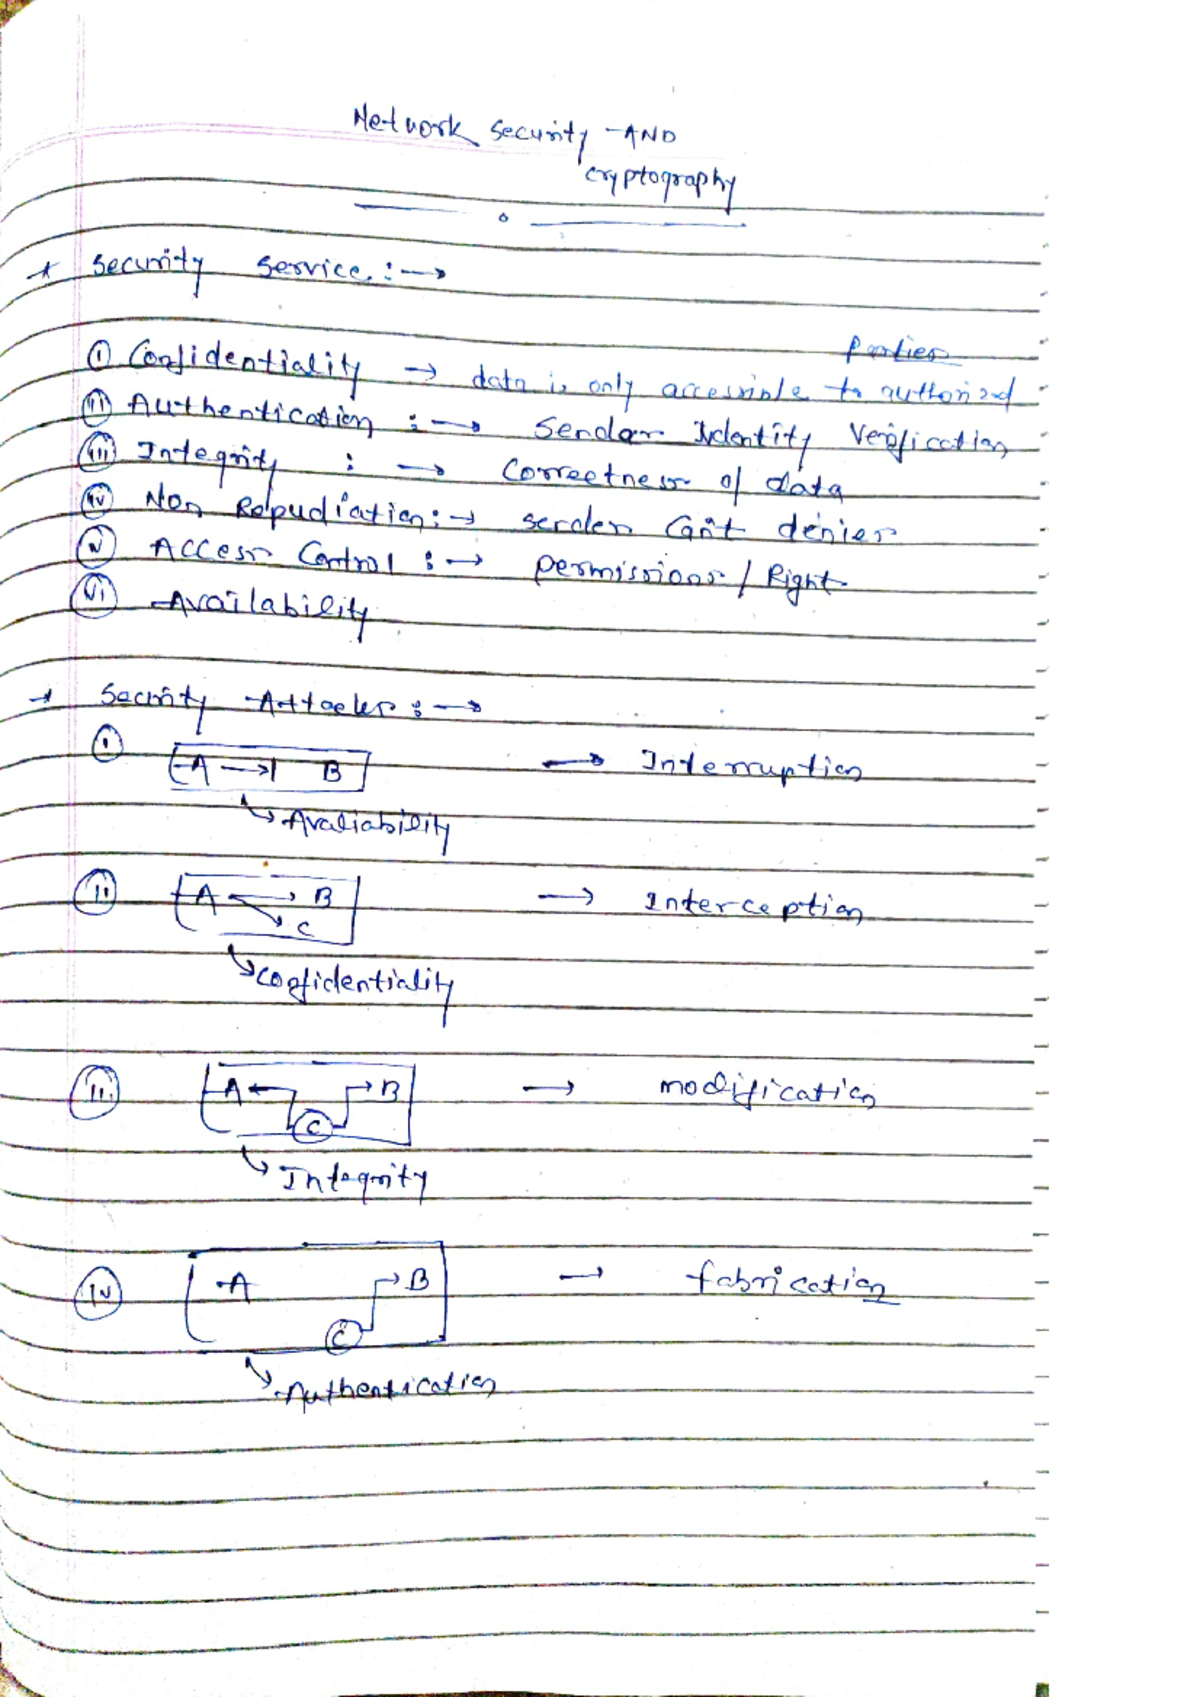 Network Security AND
Cryptography
* Security Service :→
(i) Confidentiality → data is only accessible to authorized Parties
(ii) Authentication :→ Sender Identity Verification
(iii) Integrity : → Correctness of data
(iv) Non Repudiation :→ sender Can't denier
(v) Access Control :→ permissions / Right
(vi) Availability
* Security Attacks :→
(i) A → B → Interruption
↳ Avaliability
(ii) A → B → Interception
C
↳ Confidentiality
(iii) A B → modification
C
↳ Integrity
(iv) A B → fabrication
C
↳ Authentication